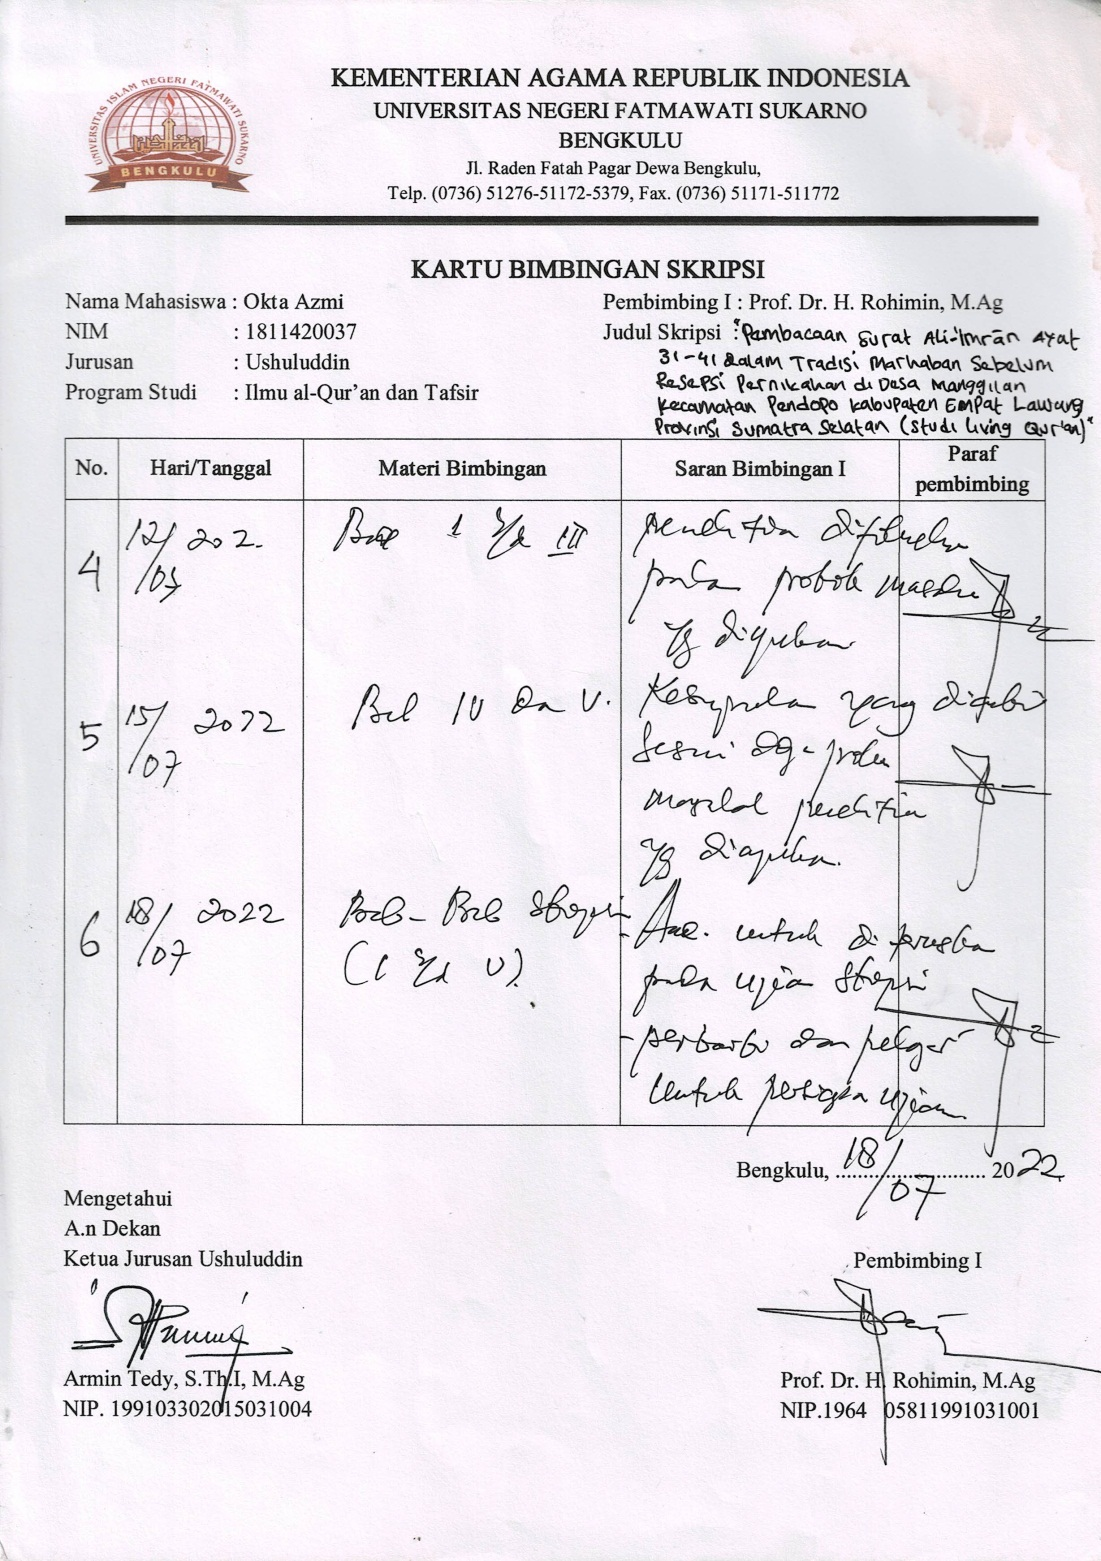 UNIVERSITAS ISLAM NEGERI FATMAWATI SUKARNO
BENGKULU
KEMENTERIAN AGAMA REPUBLIK INDONESIA
UNIVERSITAS NEGERI FATMAWATI SUKARNO
BENGKULU
Jl. Raden Fatah Pagar Dewa Bengkulu,
Telp. (0736) 51276-51172-5379, Fax. (0736) 51171-511772
KARTU BIMBINGAN SKRIPSI
Nama Mahasiswa : Okta Azmi
NIM : 1811420037
Jurusan : Ushuluddin
Program Studi : Ilmu al-Qur'an dan Tafsir
Pembimbing I : Prof. Dr. H. Rohimin, M.Ag
Judul Skripsi : "Pambacaan Surat Ali-'Imrān Ayat
31-41 dalam Tradisi Marhaban Sebelum
Resepsi Pernikahan di Desa Manggilan
Kecamatan Pendopo Kabupaten Empat Lawang
Provinsi Sumatra Selatan (Studi Living Qur'an)"
No. Hari/Tanggal Materi Bimbingan Saran Bimbingan I Paraf
pembimbing
4 12/ 202. Bab 1 s/d III
/05
pada masalah
yg
5 15/ 2022 Bab IV dan V. yang
/07
sesuai
masalah
yg
6 18/ 2022 Bab-Bab Skripsi
/07 (1 s/d V).
Acc. untuk
pada ujian Skripsi
- perbarbi dan
untuk ujian
Bengkulu, 18/07 2022
Mengetahui
A.n Dekan
Ketua Jurusan Ushuluddin
Pembimbing I
Armin Tedy, S.Th.I, M.Ag
NIP. 199103302015031004
Prof. Dr. H. Rohimin, M.Ag
NIP.1964 05811991031001